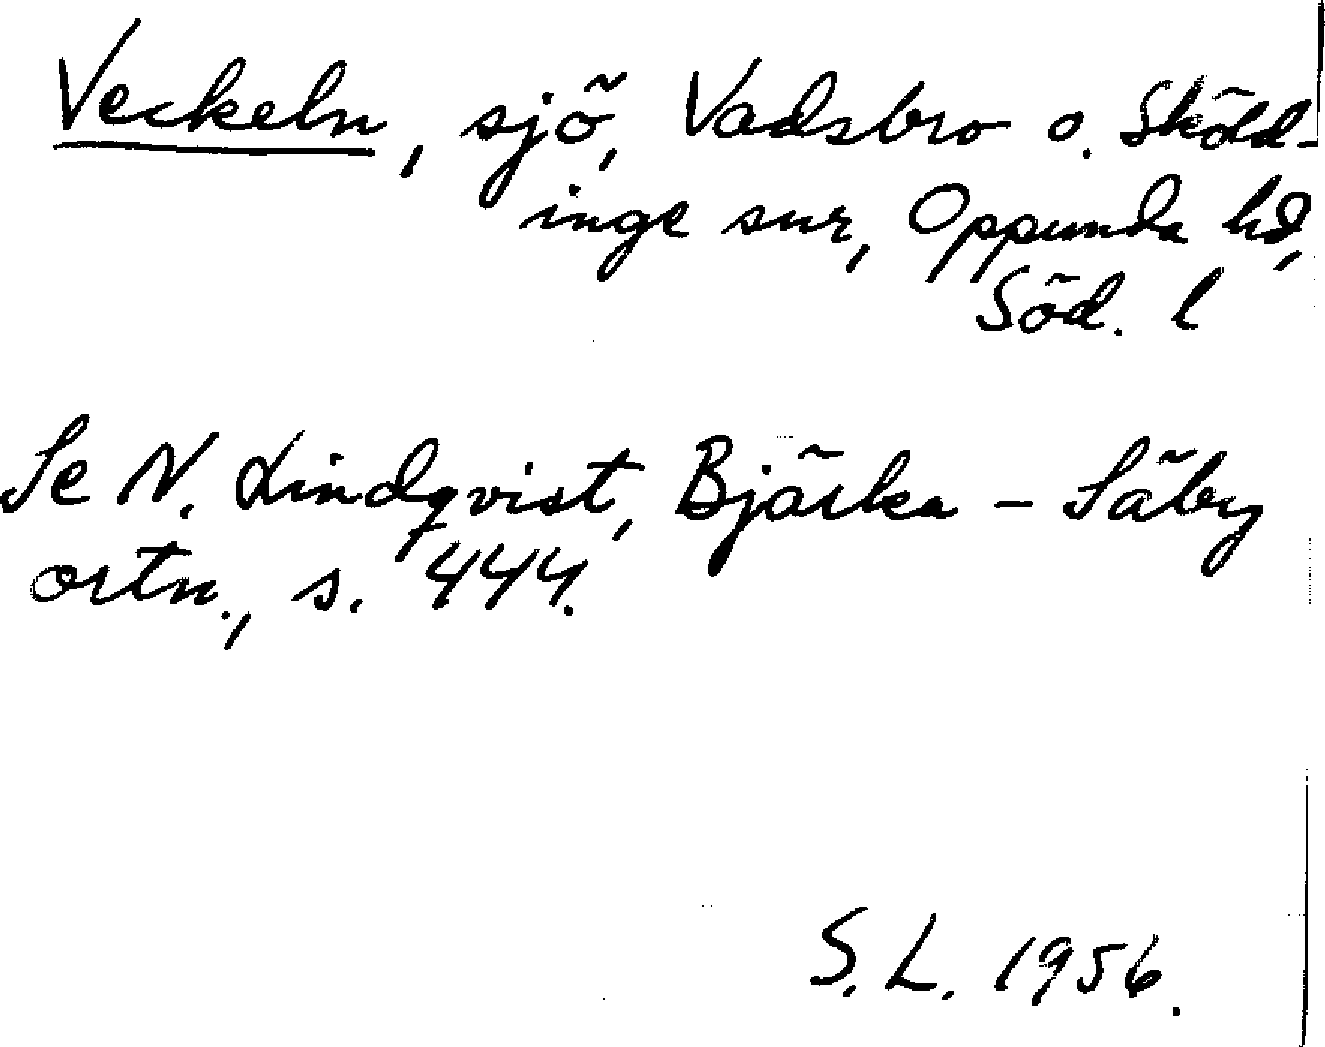 Veckeln, sjö, Vadsbro o. Sköld-
inge snr, Oppunda hd,
Söd. l
Se N. Lindqvist, Bjärka - Säby
ortn., s. 444.
S. L. 1956.